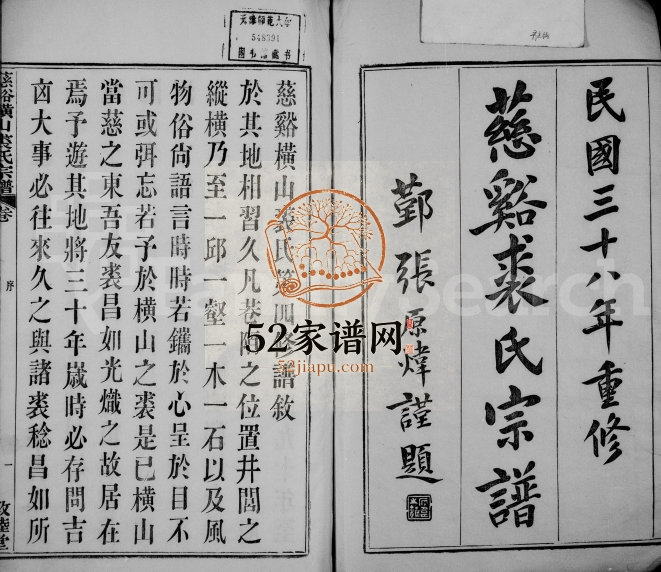 民國三十八年重修
慈谿裘氏宗譜
鄞張原煒謹題
慈谿橫山裘氏第四修譜敘
於其地相習久凡巷陌之位置井閭之
縱橫乃至一邱一壑一木一石以及風
物俗尚語言時時若鑴於心呈於目不
可或弭忘若予於橫山之裘是已橫山
當慈之東吾友裘昌如光熾之故居在
焉予遊其地將三十年歲時必存問吉
凶大事必往來久之與諸裘稔昌如所
慈谿橫山裘氏宗譜 卷
序
一
敦睦堂
548391
52家谱网
52jiapu.com